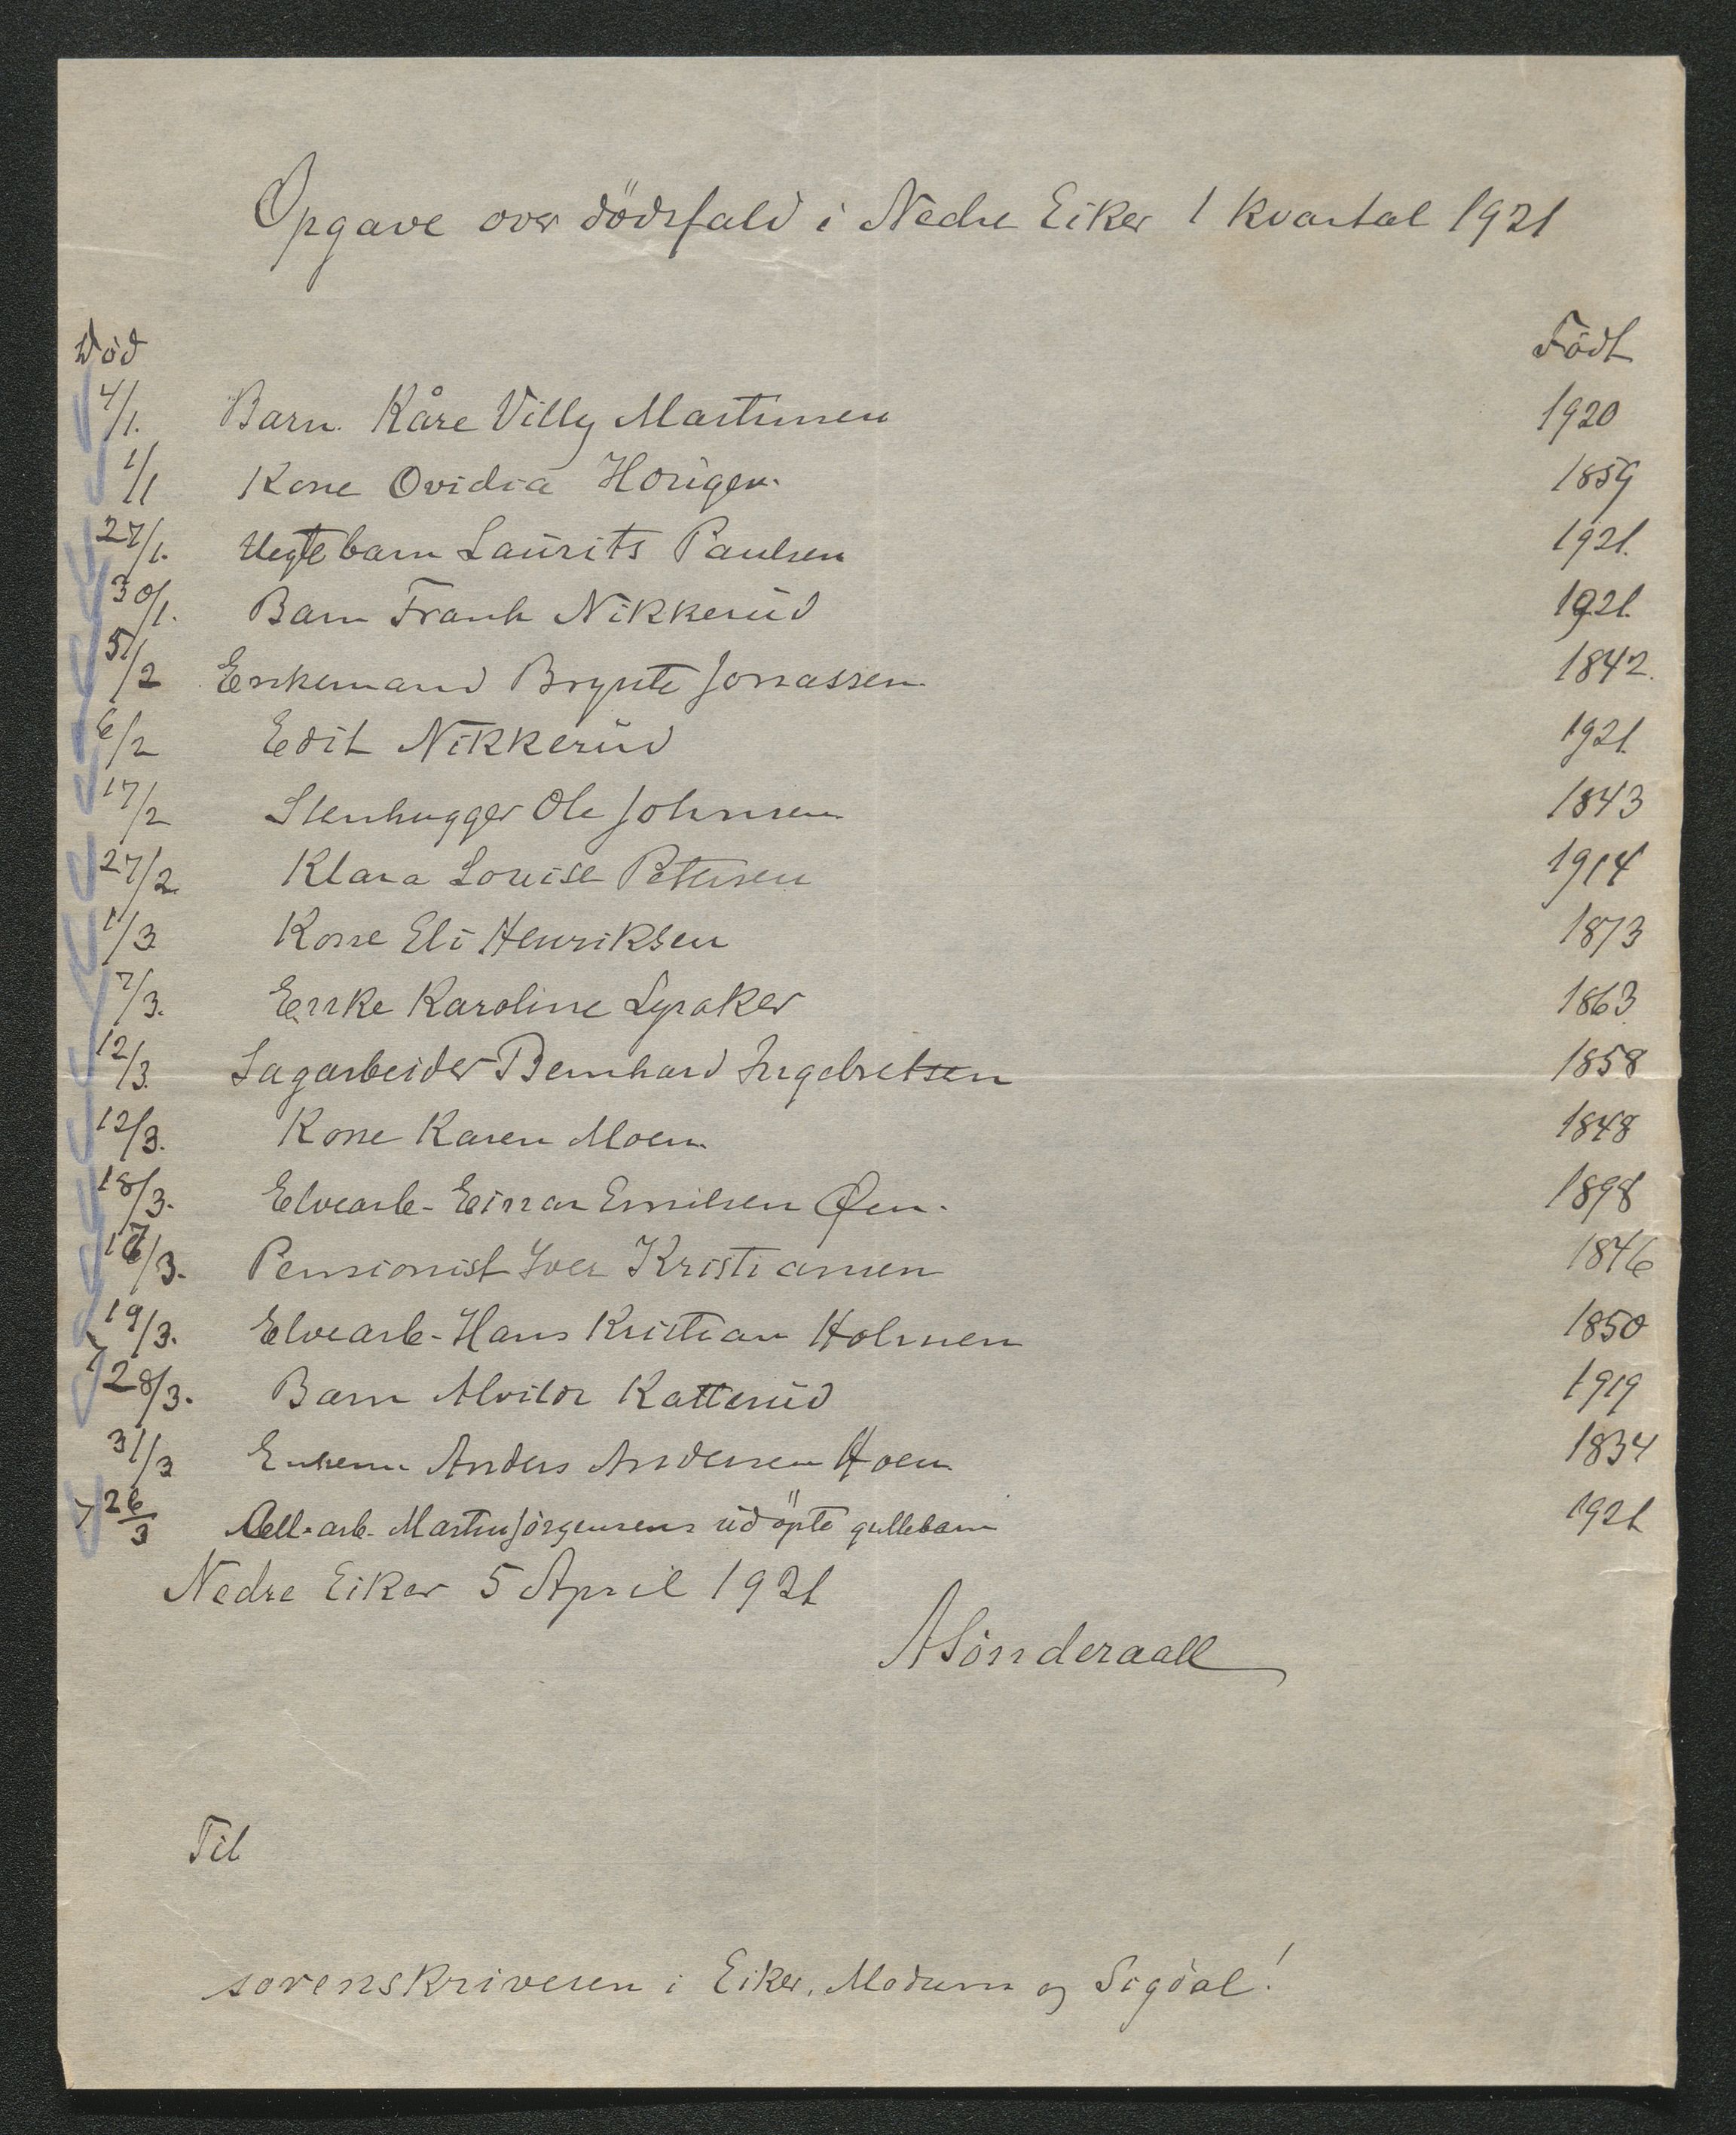 Opgave over dödsfald i Nedre Eiker 1 kvartal 1921
Död Födt
4/1. Barn. Kåre Villy Martinsen 1920
1/1 Kone Ovidia Horigen. 1859
27/1. Uegte barn Laurits Paulsen 1921.
30/1. Barn Frank Nikkerud 1921.
5/2 Enkemand Brynte Jonassen 1842.
6/2 Edit Nikkerud 1921.
17/2 Stenhugger Ole Johnsen 1843
27/2. Klara Louise Petersen 1914
1/3 Kone Eli Henriksen 1873
7/3. Enke Karoline Lyraker 1863
12/3. Sagarbeider Bernhard Ingebretsen 1858
12/3. Kone Karen Moen. 1848
18/3. Elvearb- Einar Emilsen Øen. 1898
/3. Pensionist Iver Kristiansen 1846
19/3. Elvearb- Hans Kristian Holmen 1850
28/3. Barn Alvilde Katterud 1919
31/3 Enkem. Anders Andersen Hoen 1834
26/3 Cell.arb. Martin Jörgensens udöpte guttebarn 1921
Nedre Eiker 5 April 1921
ASönderaall
Til
sorenskriveren i Eiker, Modum og Sigdal!